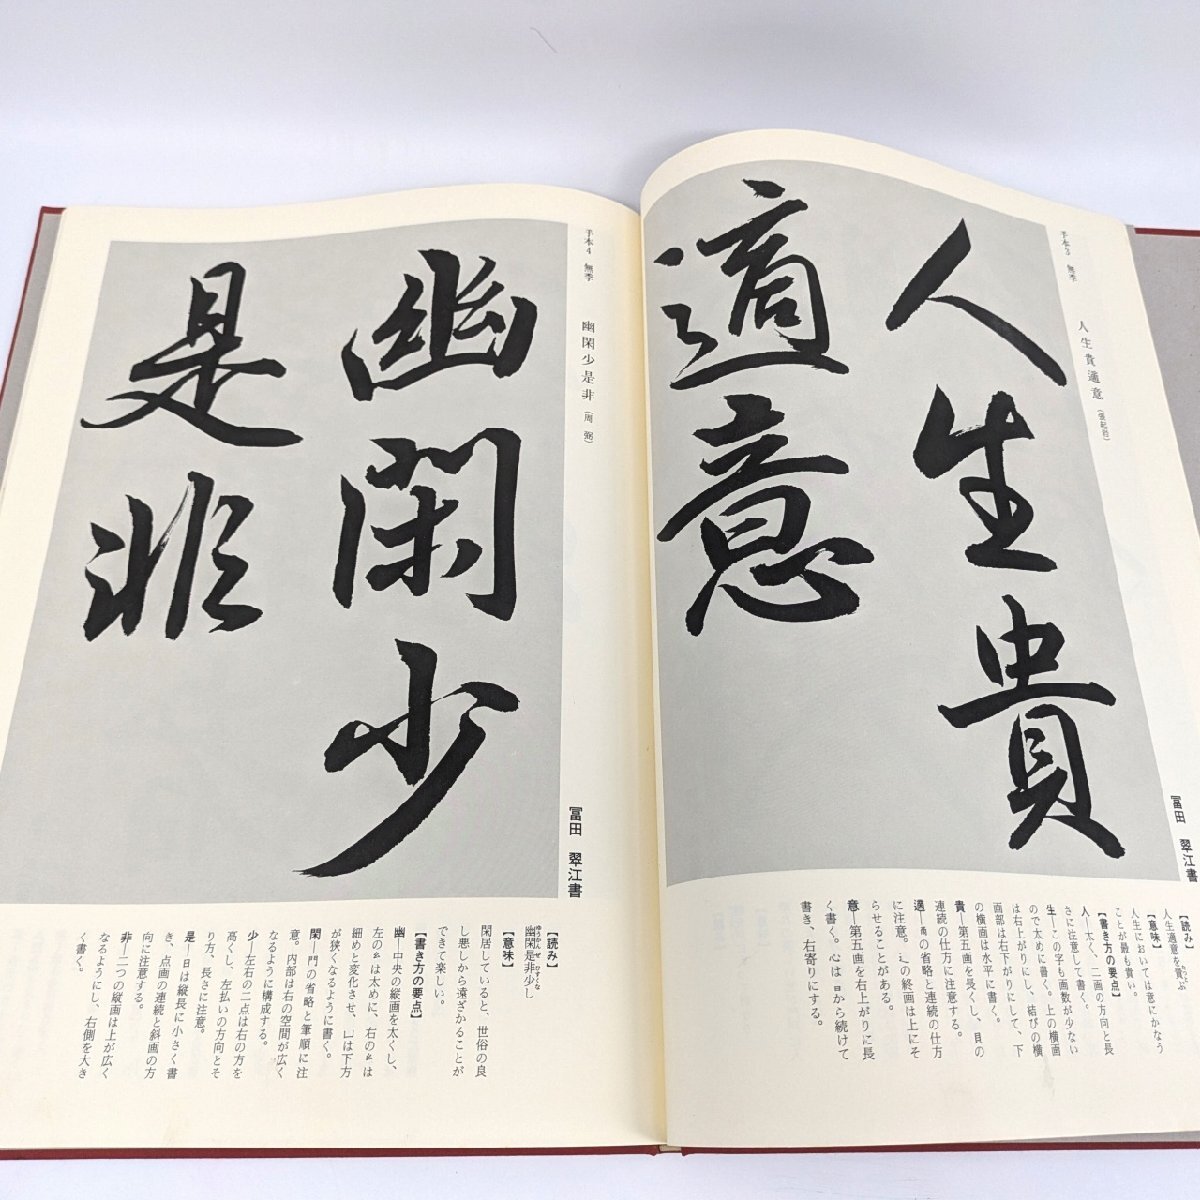 手本3 無季
人生貴適意
人生貴
適意
冨田 翠江書
【読み】
人生適意を貴ぶ
【意味】
人生においては意にかなう
ことが最も貴い。
【書き方の要点】
人―太く、二画の方向と長
さに注意して書く。
生―この字も画数が少ない
ので太めに書く。上の横画
は右上がりにし、結びの横
画部は右下がりにして、下
の横画は水平に書く。
貴―第五画を長くし、目の
連続の仕方に注意する。
適―啇の省略と連続の仕方
に注意。辶の終画は上にそ
らせることがある。
意―第五画を右上がりに長
く書く。心は日から続けて
書き、右寄りにする。
手本4 無季
幽閑少是非(周弼)
幽閑少
是非
冨田 翠江書
【読み】
幽閑是非少し
ゆうかんぜひすくなし
【意味】
閑居していると、世俗の良
し悪しから遠ざかることが
できて楽しい。
【書き方の要点】
幽―中央の縦画を太くし、
左の幺は太めに、右の幺は
細めと変化させ、凵は下方
が狭くなるように書く。
閑―門の省略と筆順に注
意。内部は右の空間が広く
なるように構成する。
少―左右の二点は右の方を
高くし、左払いの方向とそ
り方、長さに注意。
是―日は縦長に小さく書
き、点画の連続と斜画の方
向に注意する。
非―二つの縦画は上が広く
なるようにし、右側を大き
く書く。